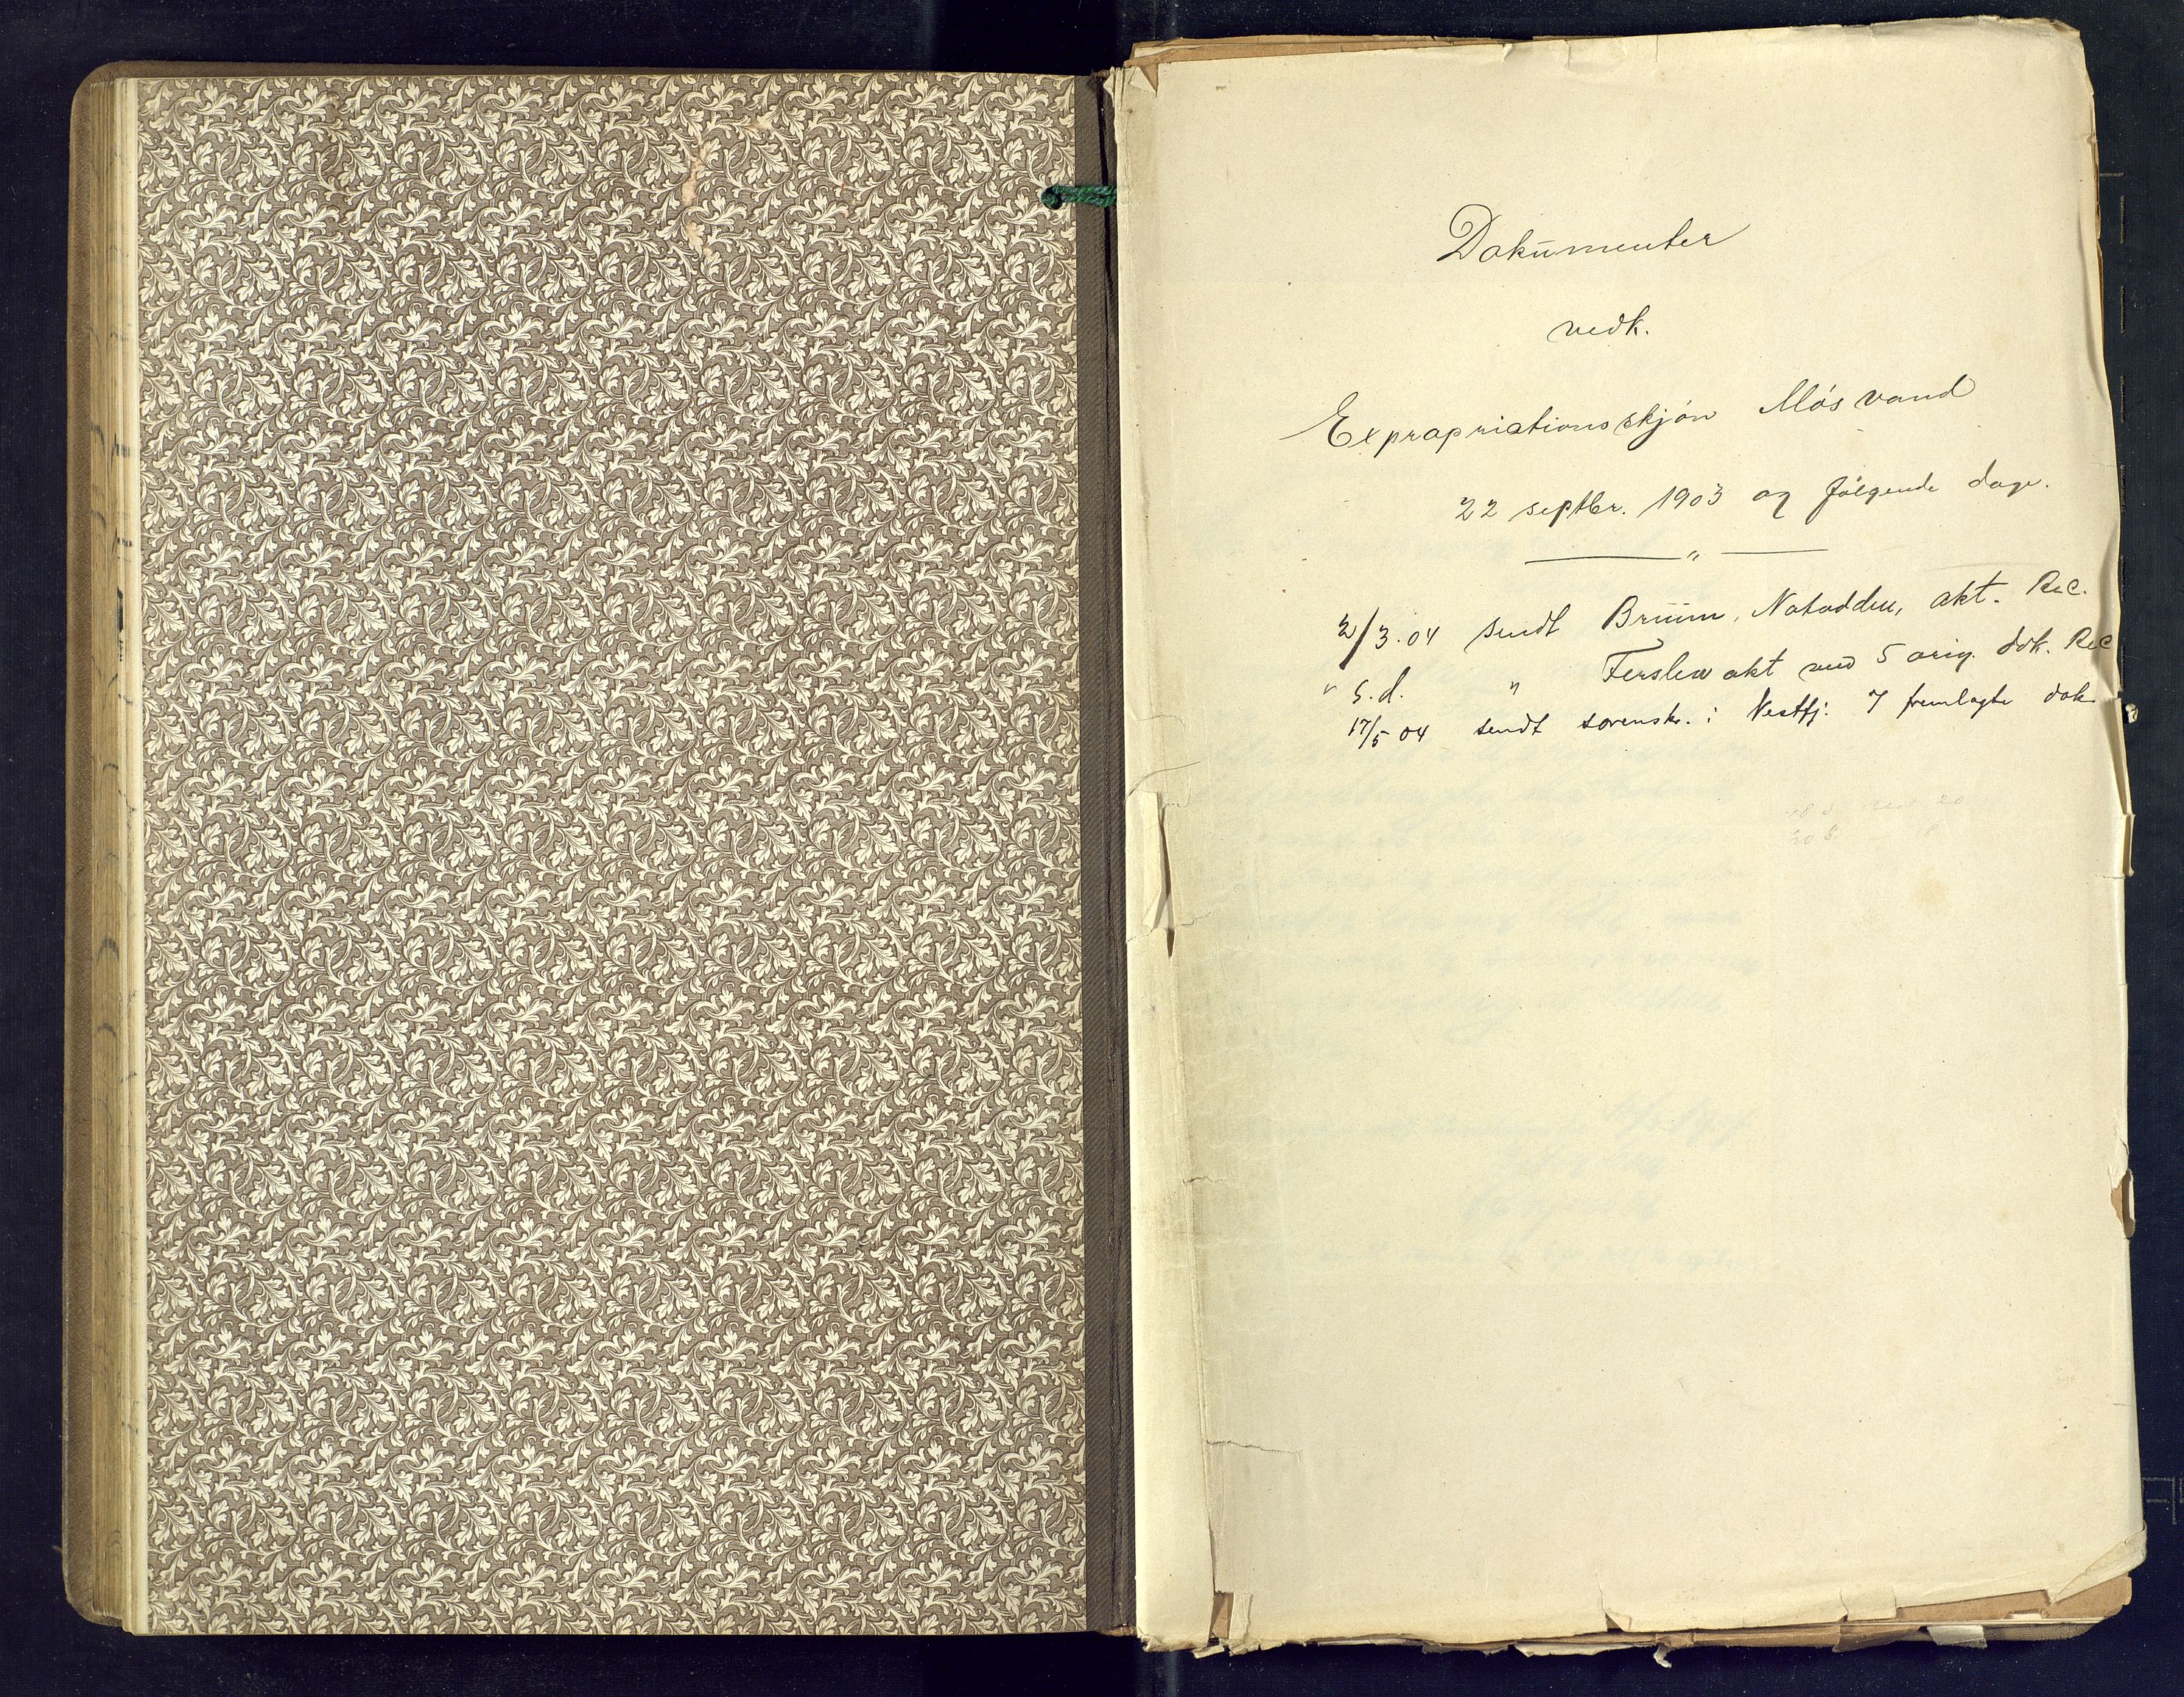 Dokumenter
vedk.
Expropriationsskjøn Møsvand
22 septbr. 1903 og følgende dage.
2/3.04 sendt Bruun, Notodden, akt. Rec.
" s.d. " Ferslew akt med 5 orig. dok. Rec
17/5 04 sendt sorenskr. i Vestfj. 7 fremlagte dok